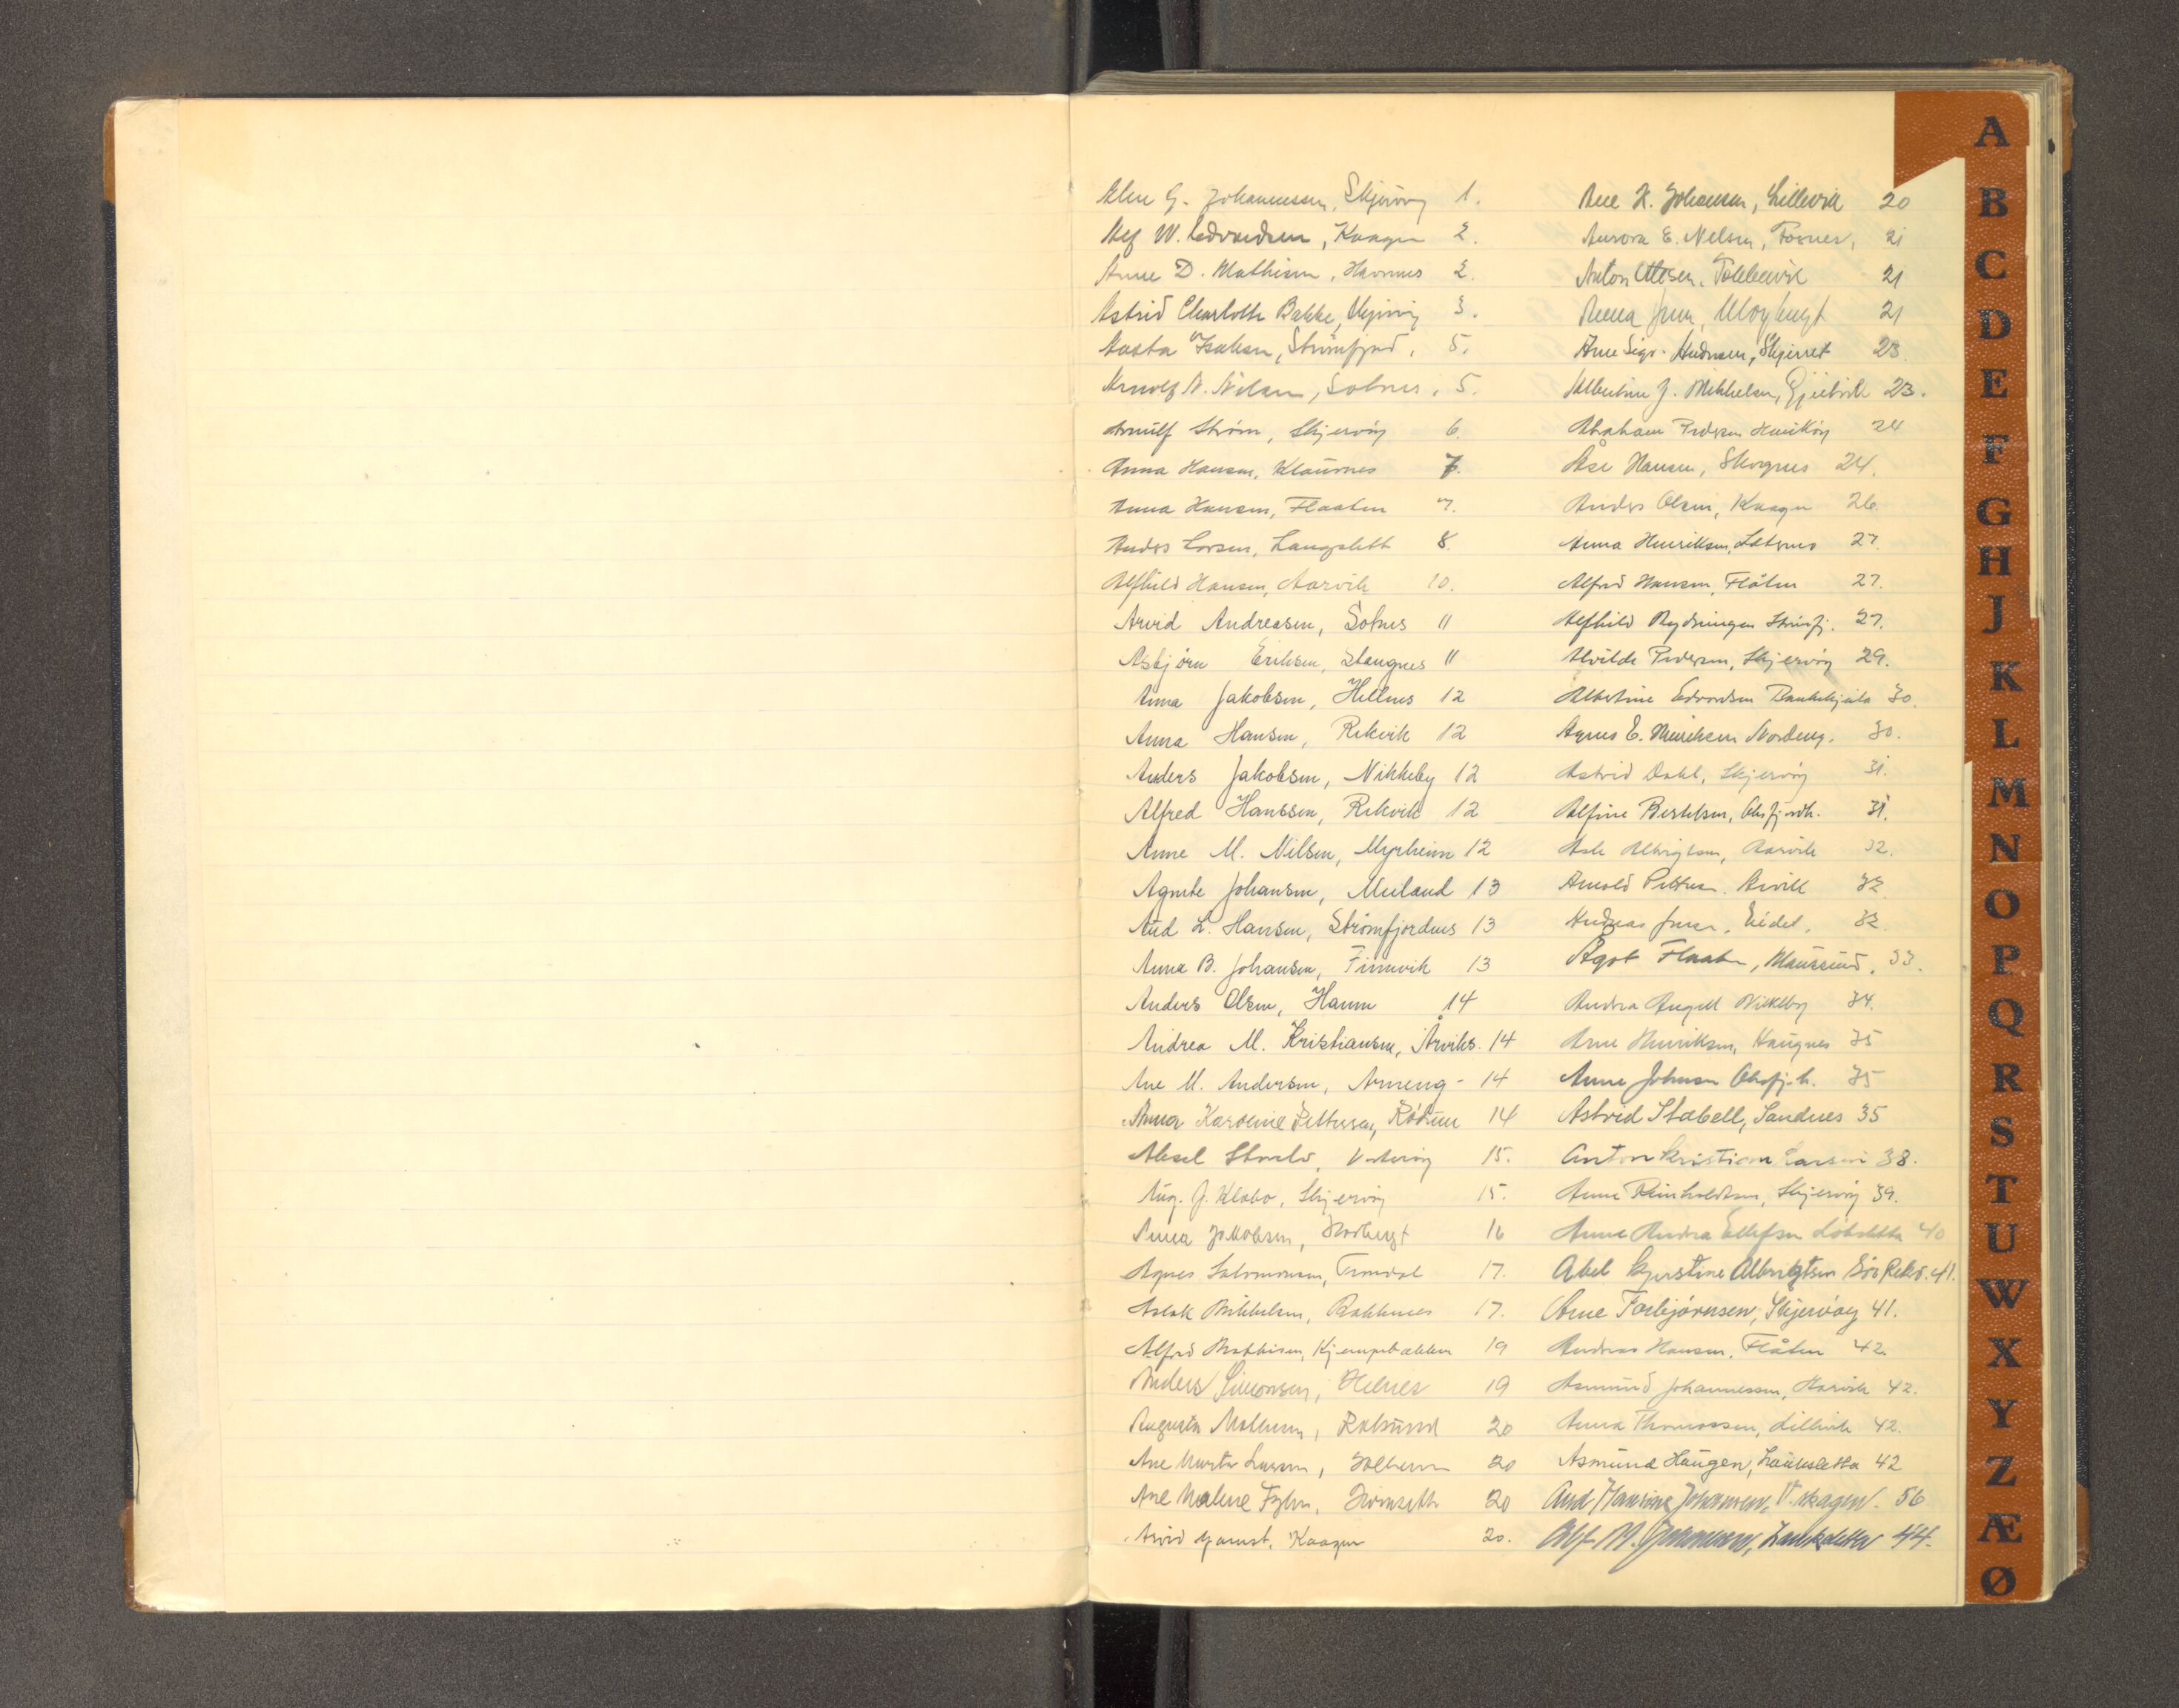 G. Johannessen, Skjervøy 1.
W. Edvardsen, Kaagen 2.
Anne D. Mathisen, Havnnes 2.
Astrid Charlotte Bakke, Skjervøy 3.
Isaksen, Strømfjord, 5.
N. Nilsen, Sotnes, 5.
Arnulf Strøm, Skjervøy 6.
Anna Hansen, Klauvnes 7.
Anna Hansen, Flaaten 7.
Anders Larsen, Langslett 8.
Alfhild Hansen, Aarvik 10.
Arvid Andreasen, Sotnes 11
Asbjørn Eriksen, Stangnes 11
Anna Jakobsen, Hellnes 12
Anna Hansen, Rekvik 12
Anders Jakobsen, Nikkeby 12
Alfred Hanssen, Rekvik 12
Anne M. Nilsen, Myrheim 12
Agnete Johansen, Meiland 13
Aud L. Hansen, Strømfjordnes 13
Anna B. Johansen, Finnvik 13
Anders Olsen, Hamn 14
Andrea M. Kristiansen, Årviks. 14
Ane M. Andersen, Armeng- 14
Anna Karoline Pettersen, 14
Aksel 15.
Aug. J. Klabo, Skjervøy 15.
Anna Jakobsen, 16
Agnes Salomonsen, 17.
Aslak Mikkelsen, Bakknes 17.
Alfred Mathisen, Kjempebakken 19
Anders Simonsen, Helnes 19
Augusta Mathisen, 20
Ane Marta Larsen, 20
Ane Malene 20
Arvid Kaagen 20.
Ane K. Johansen, Lillevik 20
Aurora E. Nelsen, 21
Anton Ottesen, 21
Anna Jensen, Uløybugt 21
Arne Sigv. 23.
Albertine J. Mikkelsen, 23.
Abraham Pedersen 24
Åse Hansen, Skognes 24.
Anders Olsen, Kaagen 26.
Anna Henriksen, 27.
Alfred Hansen, Flåten 27.
Alfhild Rydningen 27.
Alvilde Pedersen, Skjervøy 29.
Albertine Edvardsen 30.
Agnes E. Henriksen Nordeng. 30.
Astrid Dahl, Skjervøy 31.
Alfine Berthelsen, 31.
Albrigtsen, Aarvik 32.
Arnold 32
Andreas Jensen, Eidet, 32.
Ågot Flaaten, Maursund, 33.
Andrea Angell Nikkeby 34.
Arne Henriksen, Haugnes 35
Anne Johnsen 35
Astrid Stabell, Sandnes 35
Anton Kristian Larsen 38.
Anna Reinholdtsen, Skjervøy 39.
Anne Andrea Ellefsen 40
Abel Kjerstine Albrigtsen 41.
Arne Torbjørnsen, Skjervøy 41.
Andreas Hansen, Flåten 42.
Asmund Johannessen, 42.
Anna Thomassen, Lillevik 42.
Asmund Haugen, Lauksletta 42
Aud Johansen, 56
Alf M. Lauksletta 44.
A
B
C
D
E
F
G
H
J
K
L
M
N
O
P
Q
R
S
T
U
W
X
Y
Z
Æ
Ø